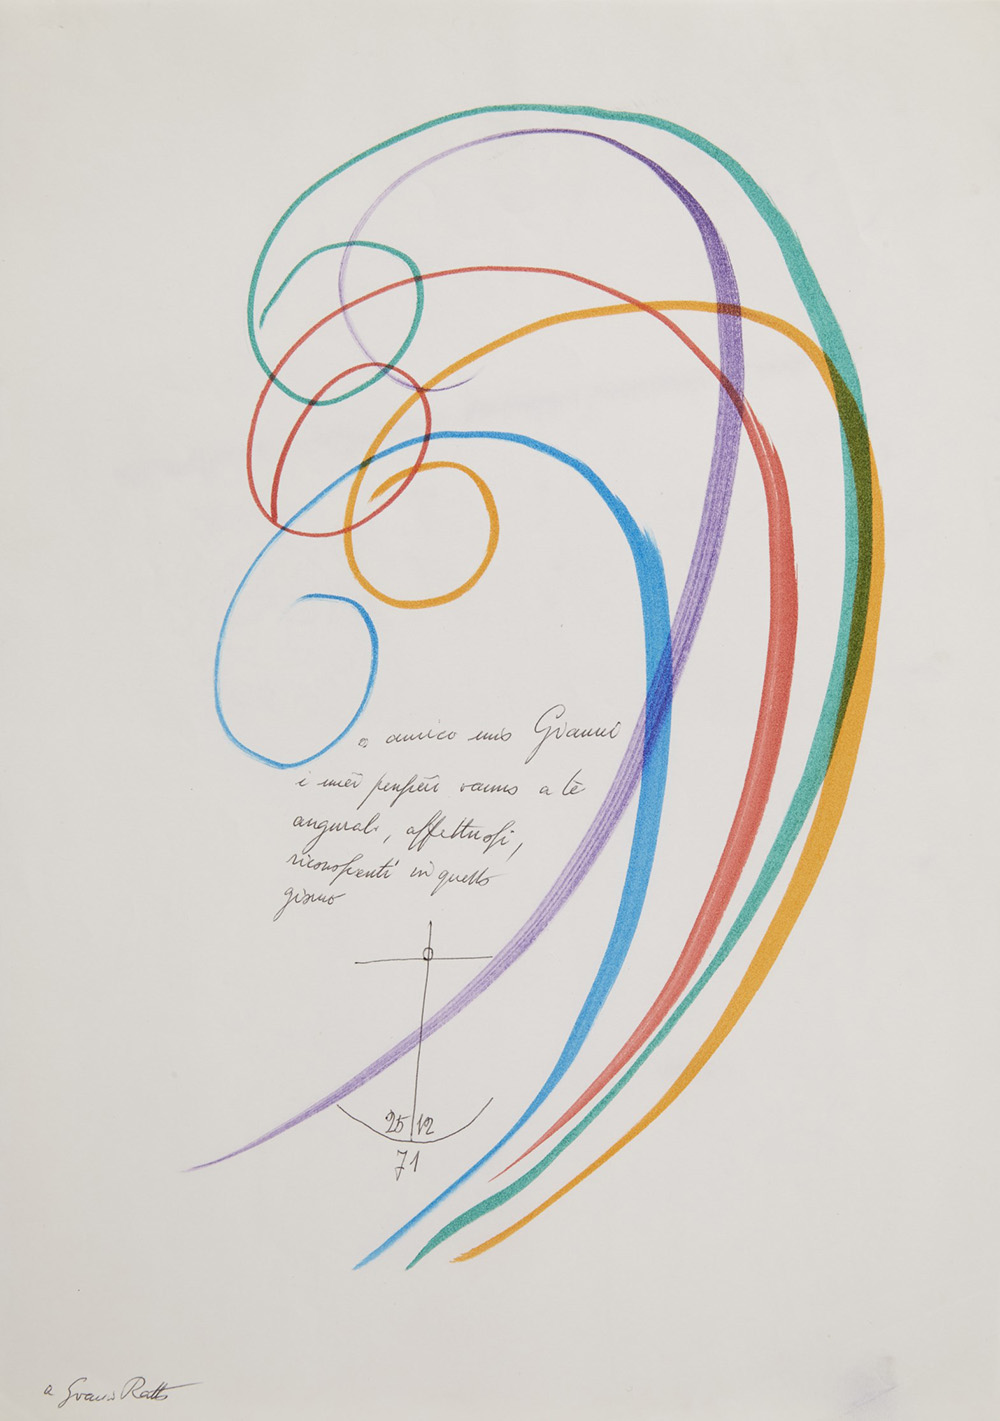 o amico mio Gianni
i miei pensieri vanno a te
augurali, affettuosi,
riconoscenti in questo
giorno
25 12
71
a Gianni Ratto